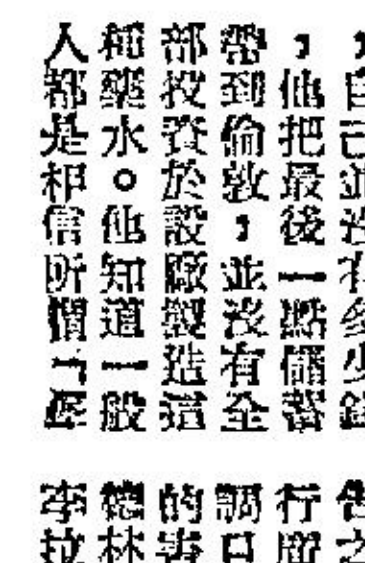 ，自己並沒有多少錢
，他把最後一點儲蓄
帶到倫敦，並沒有全
部投資於設廠製造這
種藥水。他知道一般
人都是相信所謂「
告之
行
調
的
德林
李